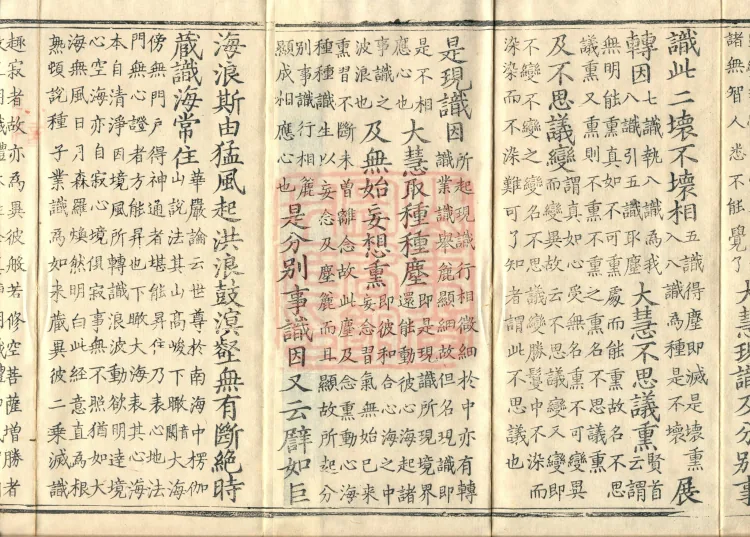 諸無智人悉不能覺了大慧現識及分別事
識此二壞不壞相
五識得塵即滅是壞
入八識為種是不壞
展
轉因
七識執八識為我
八識引五識取塵
大慧不思議熏
賢首
云謂
無明能熏真如不可熏處而能熏故名不思
議熏又熏則不熏不熏之熏名不思議熏
及不思議變
謂真如心受無名不可變異
而變異故云不思議變又變即
不變不變之變名不思議變勝鬘中不染而
染染而不染難可了知者謂不思議也
是現識因
所起現識行相微細於中亦有轉
識業識舉麁顯細故但名現識即
是不相
應心也
大慧取種種塵
即是現識所現境界
還能動彼心海起諸
事識之
波浪也
及無始妄想熏
即彼和合心海之中
妄念習氣無始已來
熏習不斷未曾離念故此塵及念熏動心海
種種識生以妄念及塵麁而且顯故所起分
別事識行相麁
顯成相應心也
是分別事識因又云譬如巨
海浪斯由猛風起洪浪鼓溟壑無有斷絕時
藏識海常住
華嚴論云世尊於南海中楞伽
山說法其山高峻下瞰大海
傍無門戶得神通者堪能昇住乃表心地法
門無心證者方能昇也下瞰大海表其心海
本自清淨因境風所轉識浪波動欲明達境
心空海亦自寂心境俱寂事無不照猶如大
海無風日月森羅煥然明白此經意直為根
熟頓說種子業識為如來藏異彼二乘滅識
趣寂者故亦為異彼般若修空菩薩增勝者